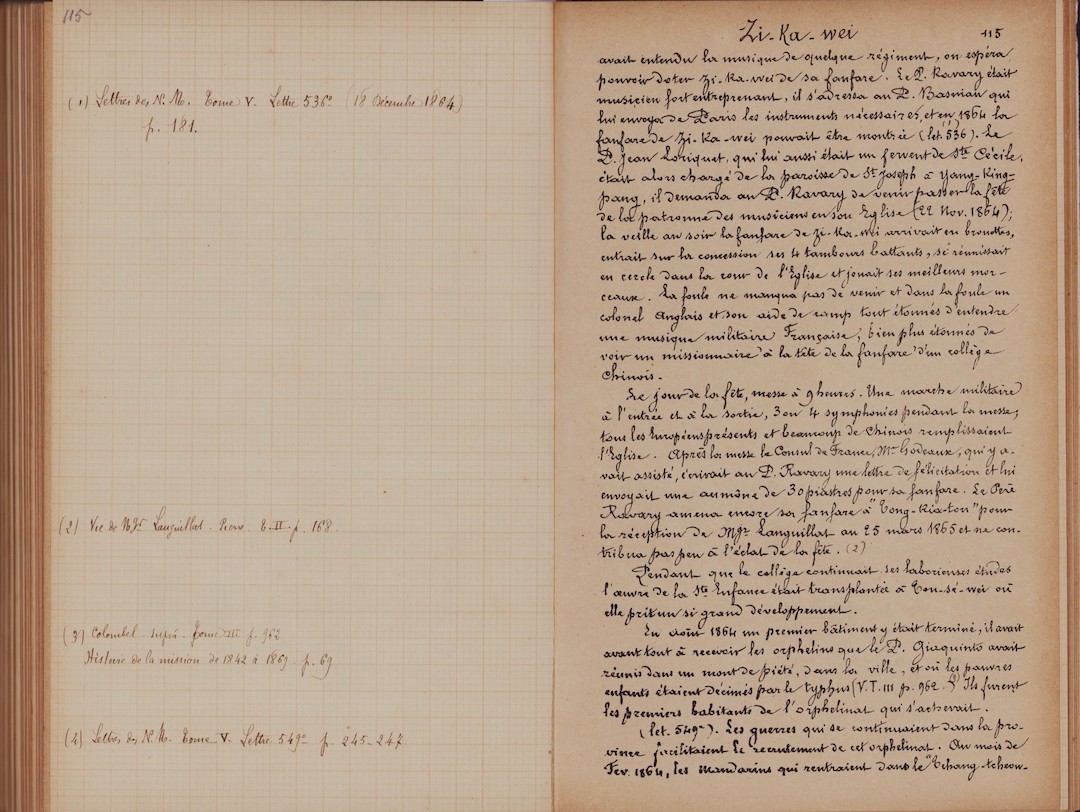 115
(1) Lettres des N. M. Tome V. Lettre 536e (18 Décembre 1864)
p. 181.
(2) Vie de Mgr Languillat. Pierre T. II. p. 168.
(3) Colombel suprà Tome III p. 962
Histoire de la mission de 1842 à 1869 p. 69
(4) Lettres des N. M. Tome V. Lettre 549e p. 245-247.
Zi-Ka-wei
115
avait entendu la musique de quelque régiment, on espéra
pouvoir doter Zi-Ka-wei de sa fanfare. Le P. Ravary était
musicien fort entreprenant, il s'adressa au P. Basuiau qui
lui envoya de Paris les instruments nécessaires, et en 1864 la
fanfare de Zi-Ka-wei pouvait être montrée (let. 536). Le
P. Jean Loriquet, qui lui aussi était un fervent de Ste Cécile,
était alors chargé de la paroisse de St Joseph à Yang-King-
pang, il demanda au P. Ravary de venir passer la fête
de la patronne des musiciens en son Eglise (22 Nov. 1864);
la veille au soir la fanfare de Zi-Ka-wei arrivait en brouettes,
entrait sur la concession ses 4 tambours battants, se réunissait
en cercle dans la cour de l'Eglise et jouait ses meilleurs mor-
ceaux. La foule ne manqua pas de venir et dans la foule un
colonel Anglais et son aide de camp tout étonnés d'entendre
une musique militaire Française, bien plus étonnés de
voir un missionnaire à la tête de la fanfare d'un collège
Chinois.
Le jour de la fête, messe à 9 heures. Une marche militaire
à l'entrée et à la sortie, 3 ou 4 symphonies pendant la messe,
tous les Européens présents et beaucoup de Chinois remplissaient
l'Eglise. Après la messe le Consul de France, Mr Godeaux, qui y a-
vait assisté, écrivait au P. Ravary une lettre de félicitation et lui
envoyait une aumône de 30 piastres pour sa fanfare. Le Père
Ravary amena encore sa fanfare à "Tong-Kia-tou" pour
la réception de Mgr Languillat au 25 mars 1865 et ne con-
tribua pas peu à l'éclat de la fête. (2)
Pendant que le collège continuait ses laborieuses études
l'œuvre de la Ste Enfance était transplantée à Tou-sé-wei où
elle prit un si grand développement.
En août 1864 un premier bâtiment y était terminé; il avait
avant tout à recevoir les orphelins que le P. Giaquinto avait
réunis dans un mont de piété, dans la ville, et où les pauvres
enfants étaient décimés par le typhus (V. T. III p. 962. 3) Ils furent
les premiers habitants de l'orphelinat qui s'achevait.
(let. 549e). Les guerres qui se continuaient dans la pro-
vince facilitaient le recrutement de cet orphelinat. Au mois de
Fev. 1864, les mandarins qui rentraient dans le "Tchang-tcheou-